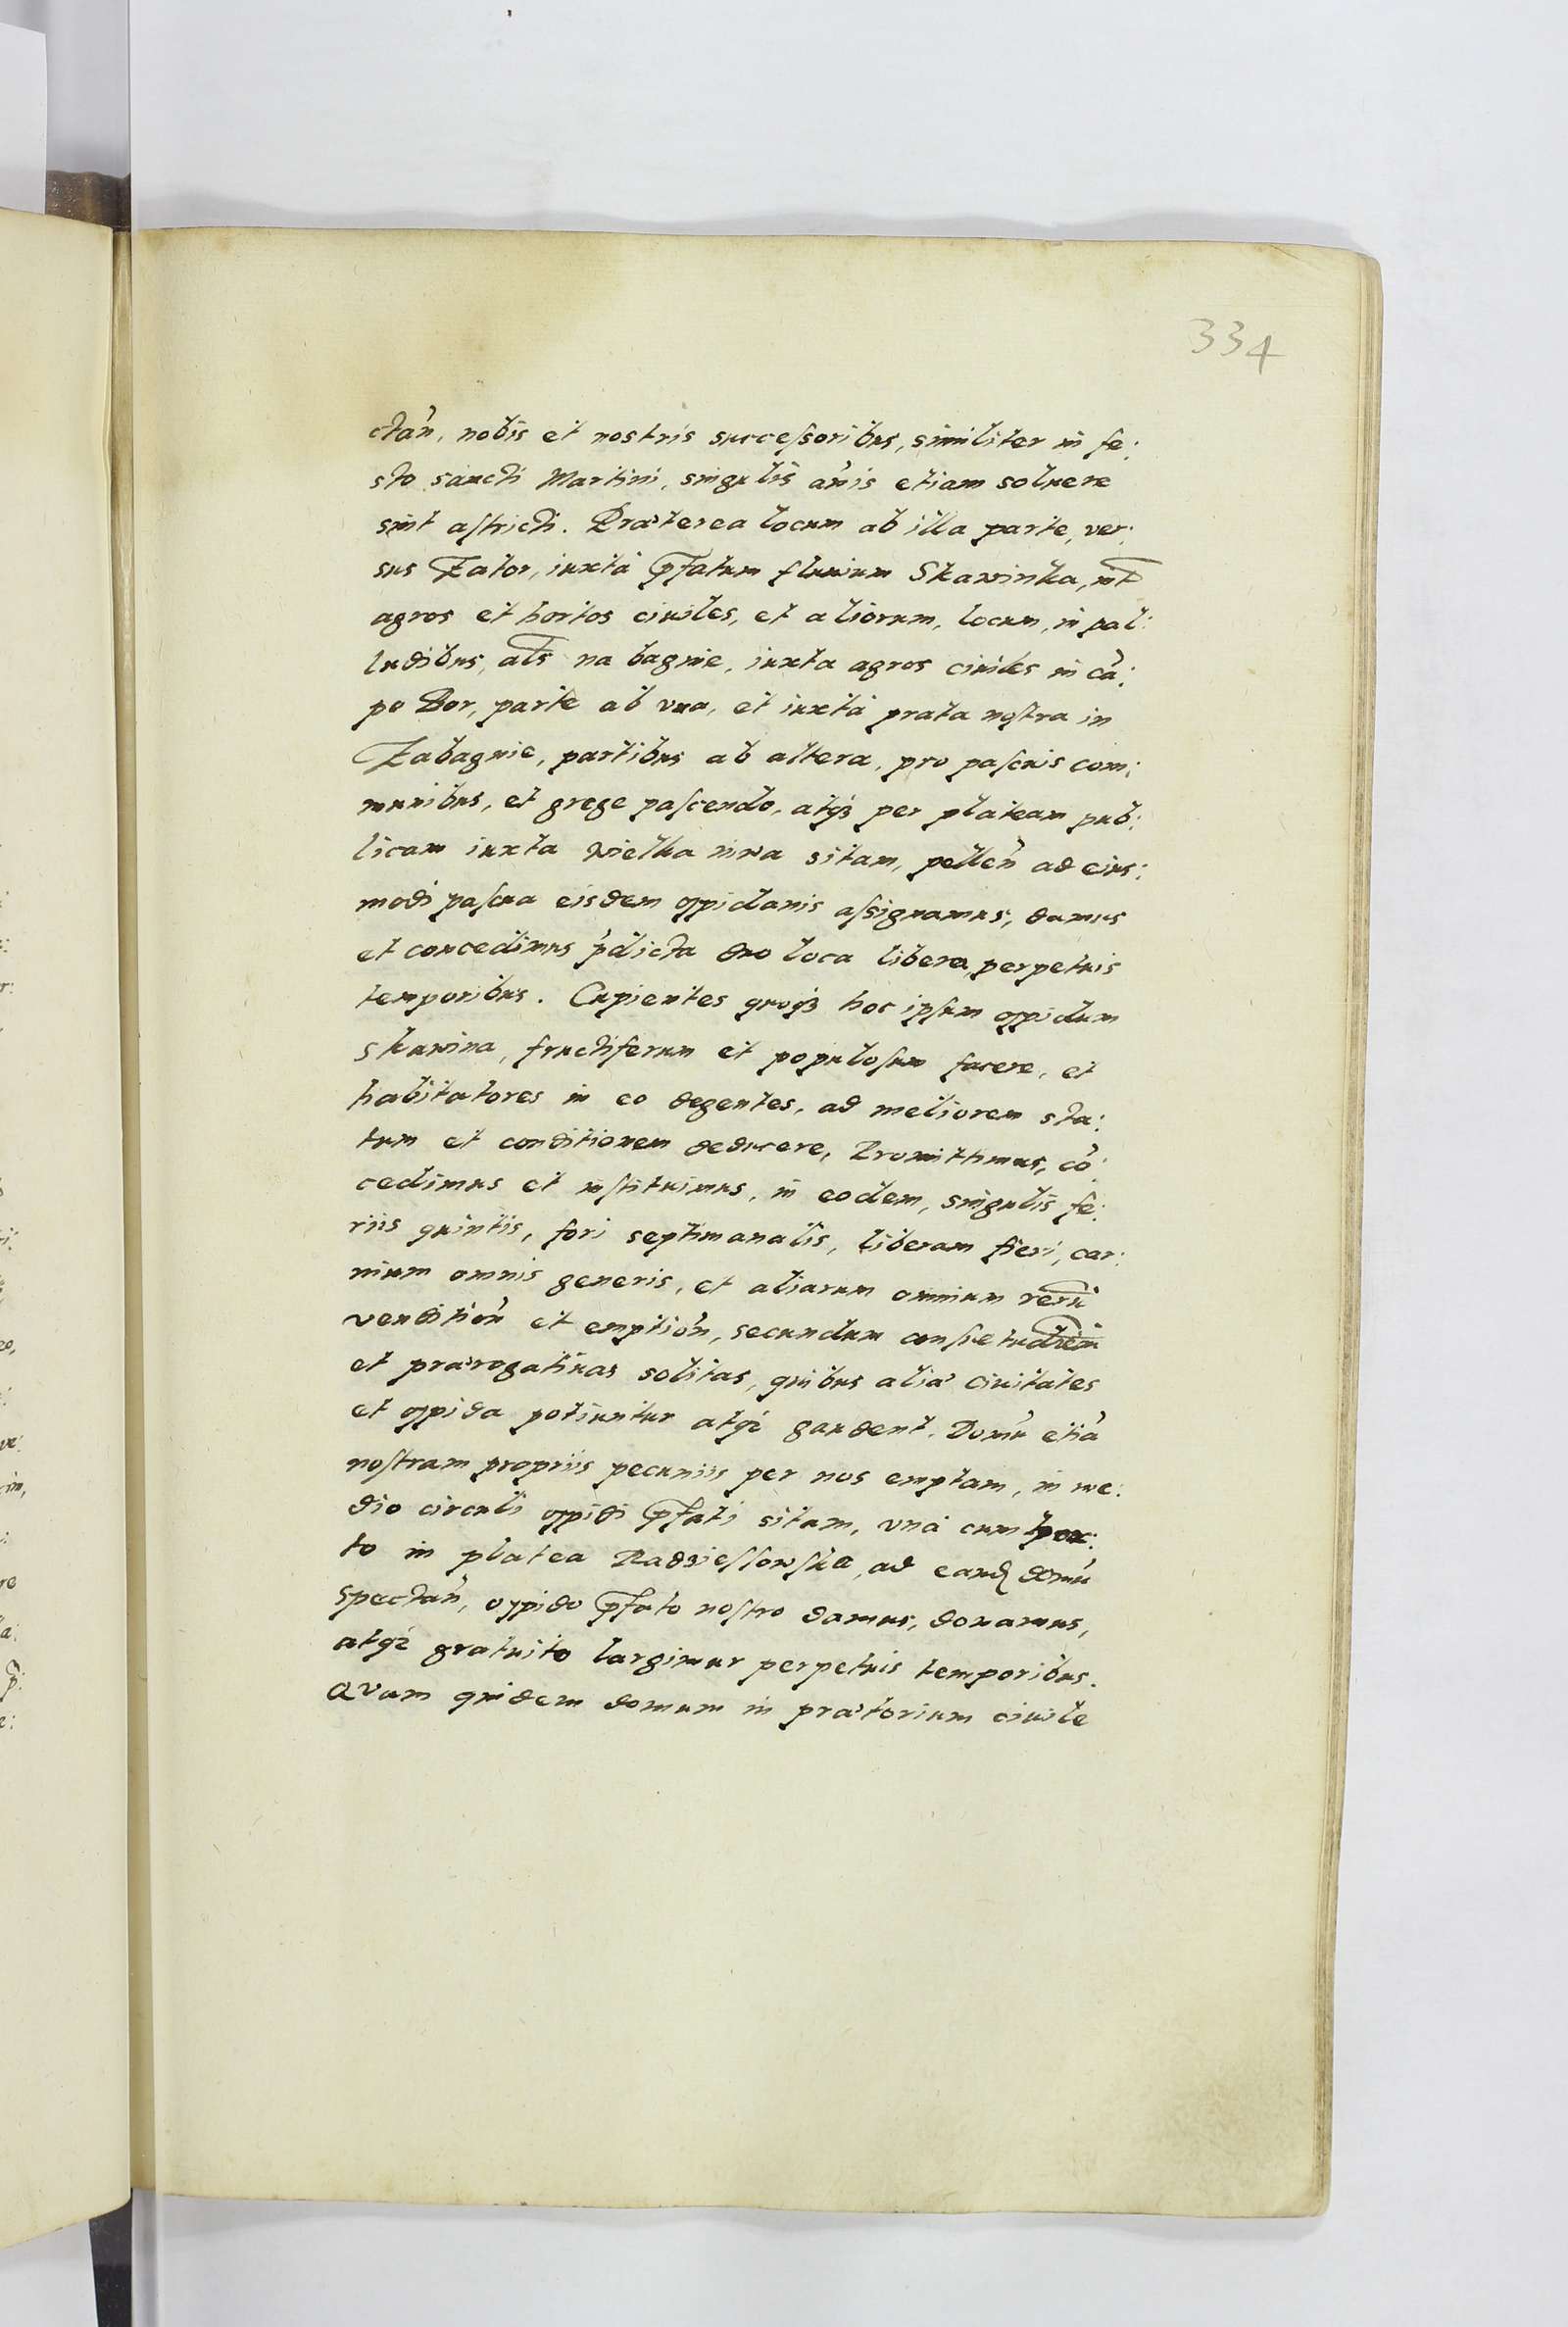 334
ctan̄, nobis et nostris succeſsoribus, similiter in fe:
sto sancti Martini, singulis an̄is etiam soluere
sint aſtricti. Præterea locum ab illa parte, ver:
sus Zator, iuxta p̄fatum fluuium Skawinka, int̄
agros et hortos ciuiles, et aliorum, locum, in pal:
ludibus, al̄s na bagnie, iuxta agros ciuiles in cā:
po Bor, parte ab vna, et iuxta prata noſtra in
Zabagnie, partibus ab altera, pro paſcuis com:
munibus, et grege paſcendo, atq₃ per plateam pub:
licam iuxta wielka niwa sitam, pellen̄ ad eius:
modi paſcua eisdem oppidanis aſsignamus, damus
et concedimus p̄dicta duo loca libera, perpetuis
temporibus. Cupientes quoq₃ hoc ipſum oppidum
Skawina, fructiferum et populoſum facere, et
habitatores in eo degentes, ad meliorem sta:
tum et conditionem deducere, Promittimus, cō:
cedimus et inſtituimus, in eodem, singulis fe:
riis quintis, fori septimanalis, liberam fieri, car:
nium omnis generis, et aliarum omnium rerū
venditiōn et emptiōn, secundum conſuetudīem
et prærogatiuas solitas, quibus aliæ ciuitates
et oppida potiuntur atq₃ gaudent. Domū etiā
noſtram propriis pecuniis per nos emptam, in me:
dio circuli oppidi p̄fati sitam, vna cum hor:
to in platea Radzieſſowſka, ad eand̄ domū
spectan̄, oppido p̄fato noſtro damus, donamus,
atq₃ gratuito largimur perpetuis temporibus.
Quam quidem domum in prætorium ciuile